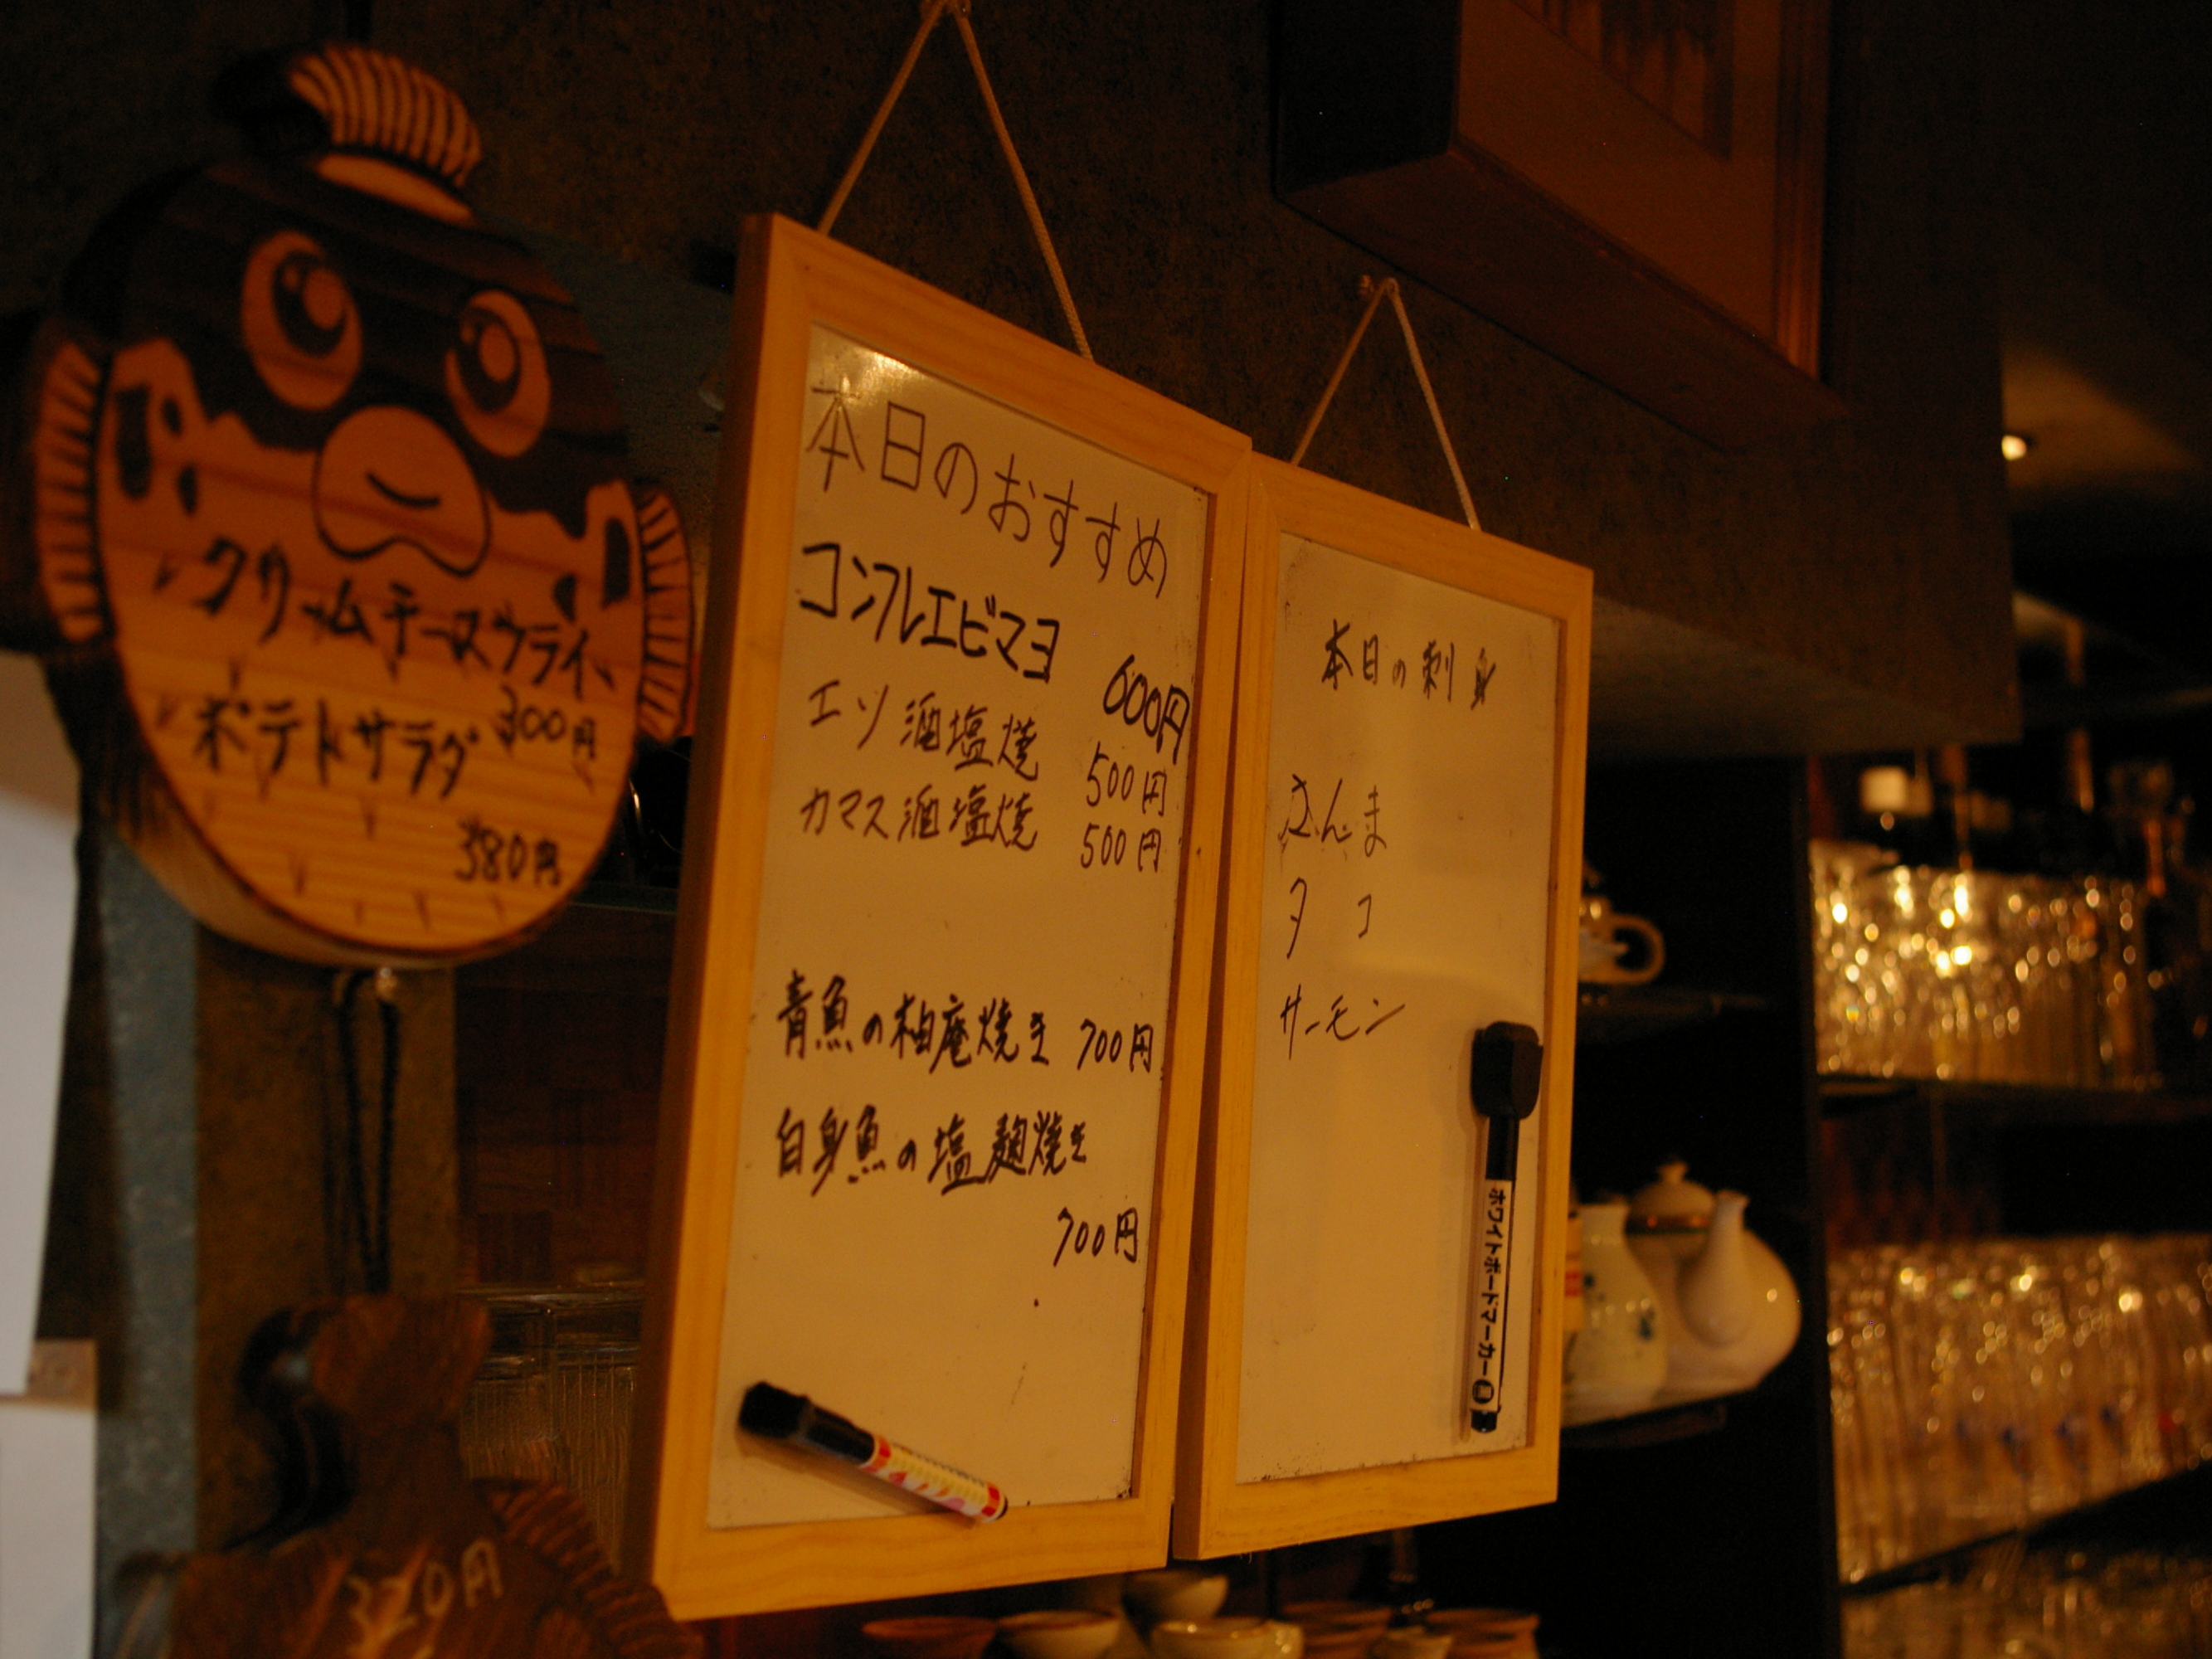 クリームチーズフライ
300円
ポテトサラダ
380円
本日のおすすめ
コンフレエビマヨ
600円
エソ酒塩焼 500円
カマス酒塩焼 500円
青魚の柚庵焼き 700円
白身魚の塩麹焼き
700円
本日の刺身
さんま
タコ
サーモン
ホワイトボードマーカー
320円